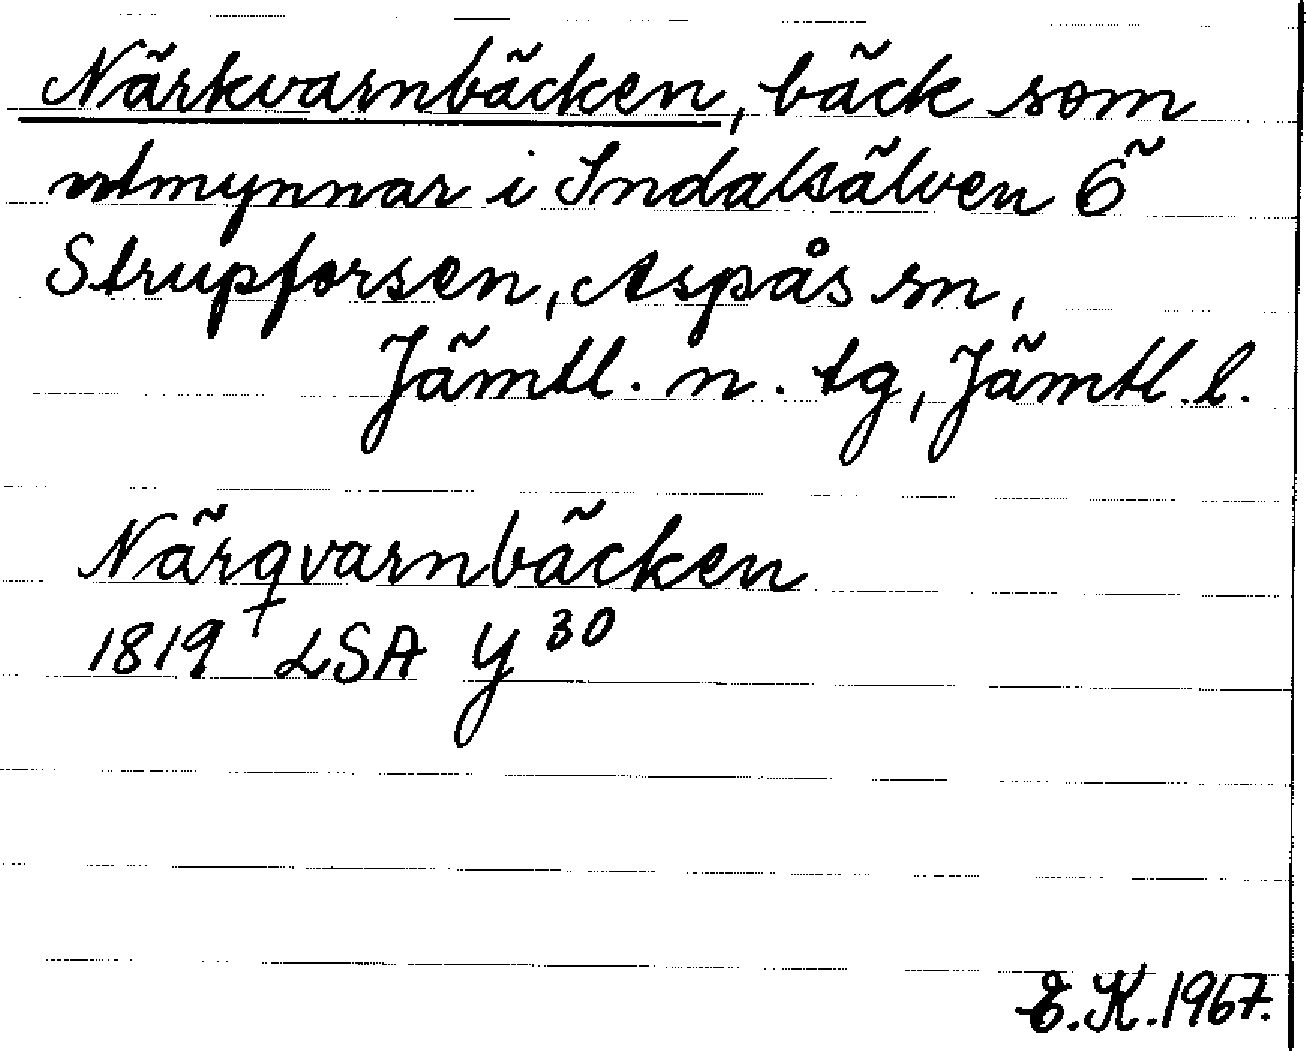 Närkvarnbäcken, bäck som
utmynnar i Indalsälven ö
Strupforsen, Aspås sn,
Jämtl. n. tg, Jämtl. l.
Närqvarnbäcken
1819 LSA Y 30
E.K. 1967.